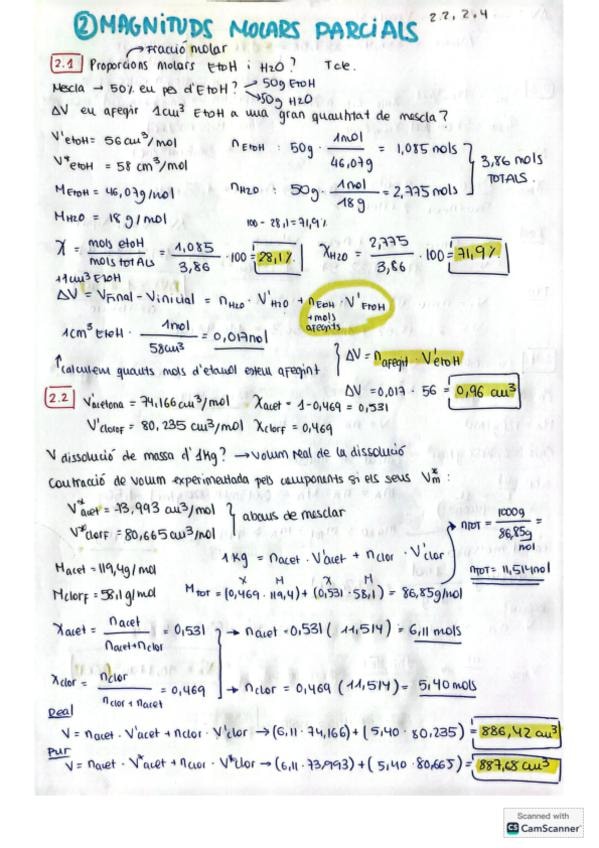 ② MAGNITUDS MOLARS PARCIALS 2.2, 2.4
→ Fracció molar
2.1 Proporcions molars EtOH i H2O? Tcte.
Mescla → 50% en pes d'EtOH? → 50g EtOH
→ 50g H2O
ΔV en afegir 1cm³ EtOH a una gran quantitat de mescla?
V'etOH = 56 cm³/mol nEtOH : 50g · 1mol / 46,07g = 1,085 mols
V*etOH = 58 cm³/mol 3,86 mols TOTALS.
MEtOH = 46,07g/mol nH2O : 50g · 1mol / 18g = 2,775 mols
MH2O = 18 g/mol 100 - 28,1 = 71,9%
X = mols etOH / mols totals = 1,085 / 3,86 · 100 = 28,1% XH2O = 2,775 / 3,86 · 100 = 71,9%
+1cm³ EtOH
ΔV = Vfinal - Vinicial = nH2O · V'H2O + nEtOH · V'EtOH
+mols afegits
1cm³ EtOH · 1mol / 58cm³ = 0,017mol ΔV = nafegit · V'etOH
↑ calculem quants mols d'etanol estem afegint ΔV = 0,017 · 56 = 0,96 cm³
2.2 V'acetona = 74,166 cm³/mol Xacet = 1-0,469 = 0,531
V'clorof = 80,235 cm³/mol Xclorf = 0,469
V dissolució de massa d'1Kg? → Volum real de la dissolució
Contracció de volum experimentada pels components si els seus Vm* :
V*acet = 73,993 cm³/mol
V*clorf = 80,665 cm³/mol } abans de mesclar
nTOT = 1000g / 86,85g/mol =
1Kg = nacet · V'acet + nclor · V'clor
nTOT = 11,514mol
Macet = 119,4g/mol
X M X M
Mclorf = 58,1g/mol Mtot = (0,469 · 119,4) + (0,531 · 58,1) = 86,85g/mol
Xacet = nacet / nacet+nclor = 0,531 → nacet = 0,531 (11,514) = 6,11 mols
Xclor = nclor / nclor + nacet = 0,469 → nclor = 0,469 (11,514) = 5,40 mols
Real
V = nacet · V'acet + nclor · V'clor → (6,11 · 74,166) + (5,40 · 80,235) = 886,42 cm³
Pur
V = nacet · V*acet + nclor · V*clor → (6,11 · 73,993) + (5,40 · 80,665) = 887,68 cm³
Scanned with
CS CamScanner